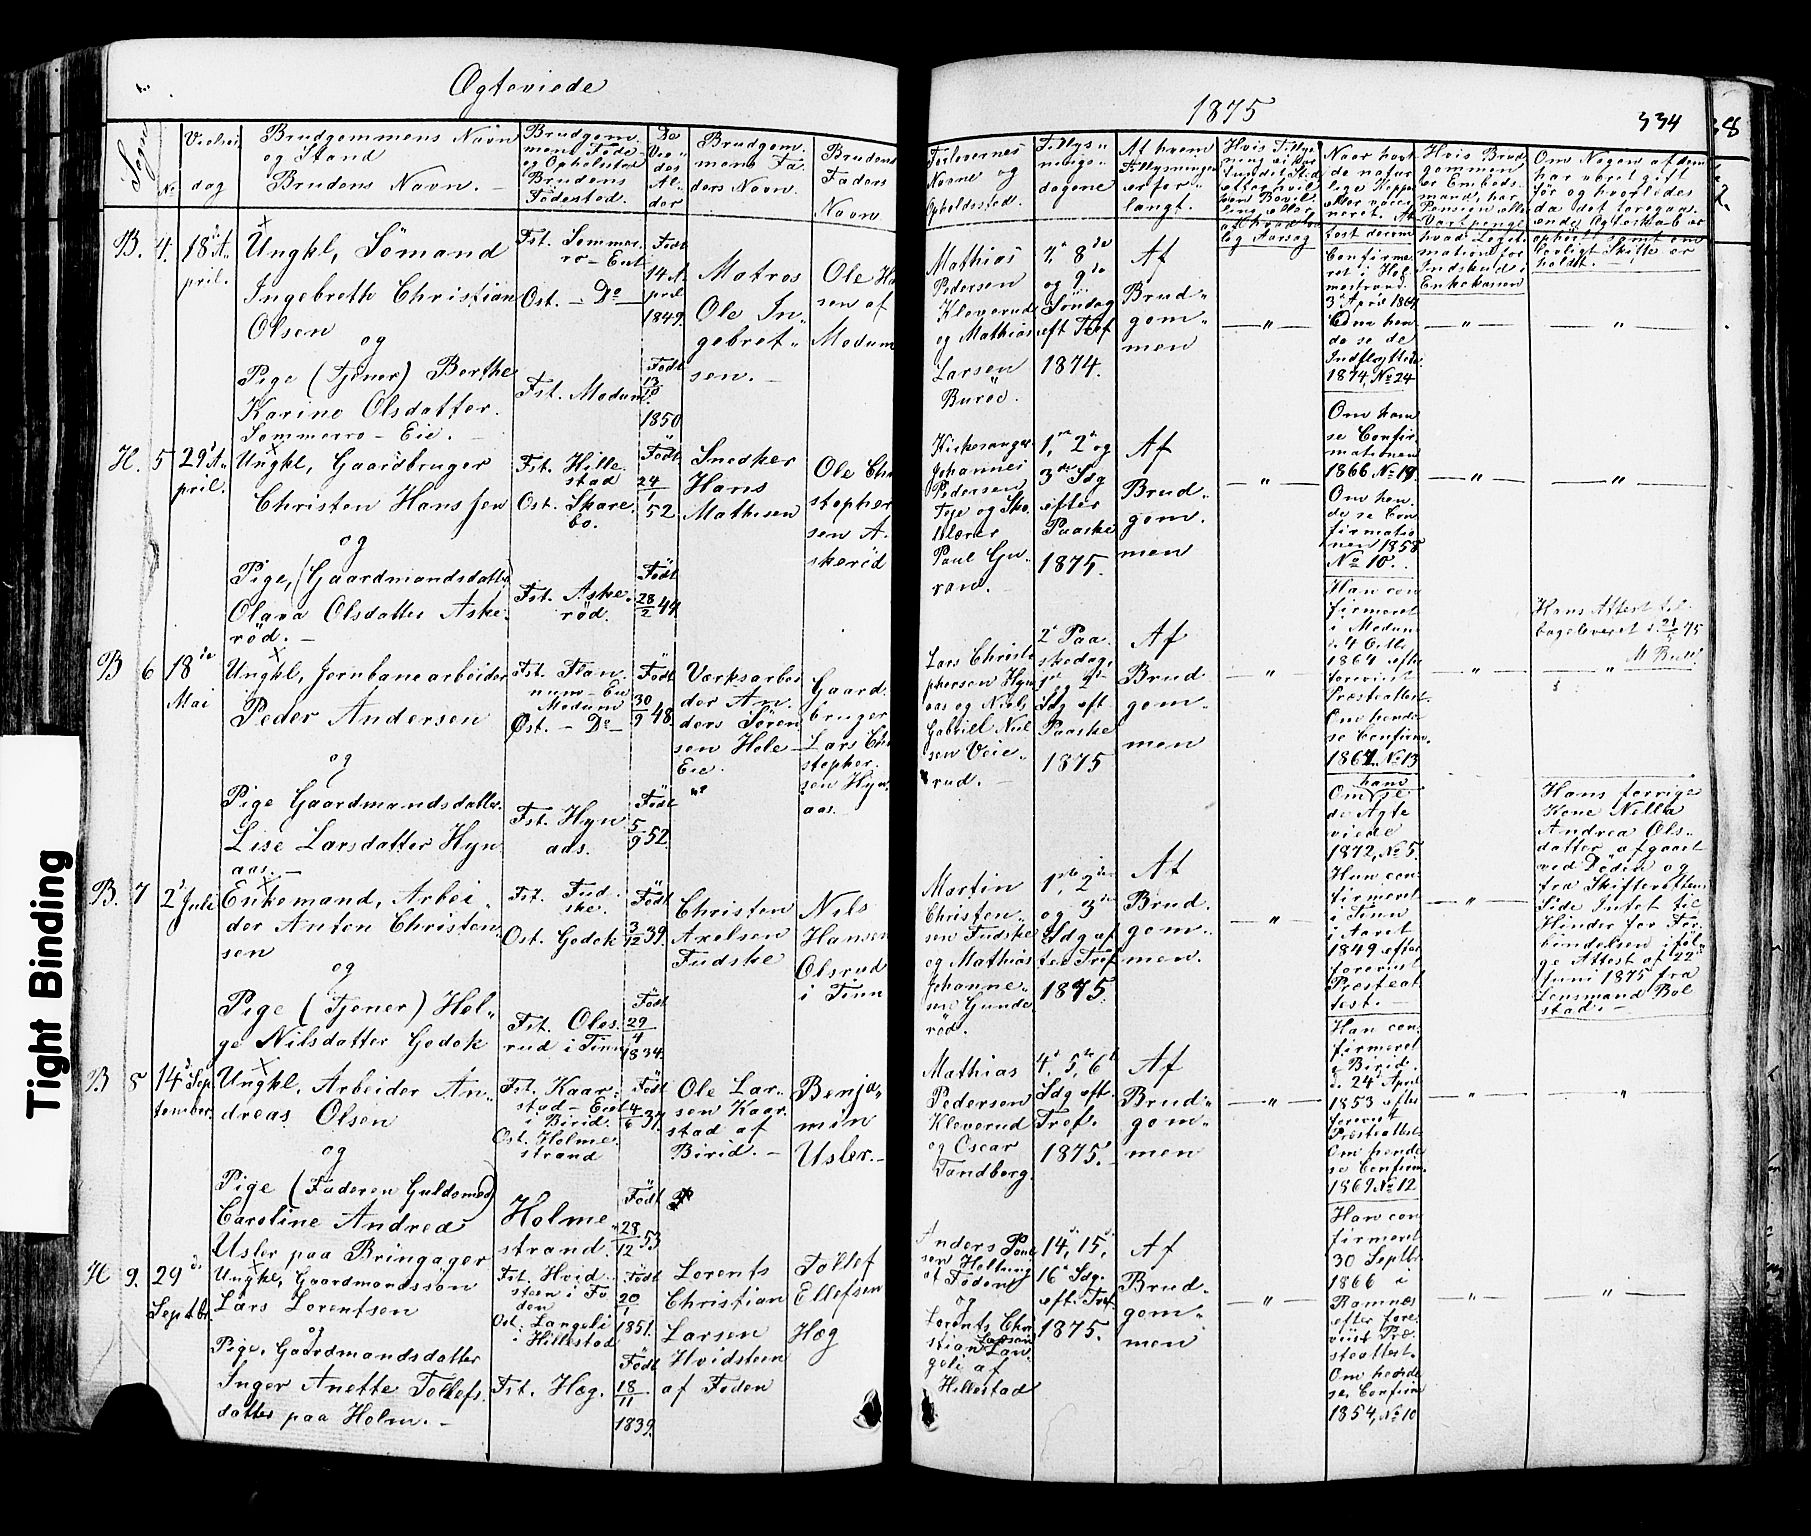 Ægteviede
1875
334
38
Tight Binding
Sogn
No
Vielses
dag
Brudgommens Navn
og Stand
Brudens Navn. —
Brudgom
mens Föde-
og Opholdssted
Brudens
Födested.
De
Vie-
des
Al-
der
Brudgom.
mens Fa-
ders Navn.
Brudens
Faders
Navn
Forlovernes
Navne og
Opholdssted.
Tillys-
nings-
dagene
Af hvem
Tillysningen
erfor-
langt.
B. 4. 18de A-
pril.
Ungkl, Sömand
Ingebreth Christian
Olsen
og
Pige (Tjener) Berthe
Karine Olsdatter.
Sommerro-Eie. —
Fst. Sommer-
ro-Eiet
Ost. — Do —
Fst. Modum.
Födt
14 A
pril
1849.
Födt
13
10
1850
Matros
Ole In-
gebret-
sen. —
Ole Ha
sen af
Modum
Mathias
Pedersen
Kleverud
og Mathias
Larsen
Buröe.
7, 8de
og 9de
Söndag
eft Tref
1874.
Af
Brud-
gom-
men
— " —
Confirme
ret i Hol
mestrand
3 April 1864
Om hen
de se de
Indflyttede
1874, No 24
— " —
"
H. 5 29 A-
pril.
Ungkl, Gaardbruger
Christen Hanssen
og
Pige, (Gaardmandsdatter)
Olava Olsdatter Aske-
röd. —
Fst. Hille
stad
Ost. Skare-
bo.
Fst. Aske-
röd.
Födt
24
1
52.
Födt
28
2 44
Snedker
Hans
Mathisen
Ole Chri
stopher
sen A-
skeröd
Kirkesanger
Johannes
Pedersen
Teie og Sko-
lelærer
Paul Gu-
ran.
1, 2 og
3de Sdg
efter
Paaske
1875.
Af
Brud-
gom.
men
— " —
Om ham
se Confir-
mationen
1866 No 19.
Om hen
de se Con
firmatio
nen 1858
No 10.
— " —
"
B 6 18de
Mai
Ungkl, Jernbanearbeider
Peder Andersen
og
Pige Gaardmandsdatter
Lise Larsdatter Hyn
aas. —
Fst. Flan
num-Eie
Modum
Ost. — Do —
Fst. Hyn
aas.
Födt
30
9 48.
Födt
5
9 52.
Værksarbei
der An-
ders Sören
sen Hole-
Eie.
Gaard
bruger
Lars Chri
stopher-
sen Hyn-
aas.
Lars Christo
phersen Hyn
aas og Niels
Gabriel Niel
sen Veie-
rud. —
2 Paa-
skedag,
1ste 2den
Sdg eft
Paaske
1875
Af
Brud
gom-
men
— " —
Han con
firmeret
i Modum
d. 4 Octb.
1864 efter
forevist
Præsteattest.
Om hende
se Confirm.
1867 No 13
— " —
Hans Attest til-
bageleveret d. 21/5 75
B. 7 2 Juli
Enkemand, Arbei-
der Anton Christen
sen
og
Pige (Tjener) Hel-
ge Nilsdatter Gedok
Fst. Fud-
ske.
Ost. Gedok
Fst. Oles-
rud i Tinn
Födt
3
12 39.
Födt
29
4
1834.
Christen
Axelsen
Fudske
Nils
Hansen
Olsrud
i Tinn
Martin
Christen-
sen Fudske
og Mathias
Johanne-
sen Gunde
röd.
1ste, 2den
og 3de
Sdg ef
ter Tref
1875.
Af
Brud-
gom-
men.
— " —
Om hans
se
de Ægte
viede
1872, No 5.
Hun con
firmeret
i Tinn
i Aaret
1849 efter
forevist
Præsteat
test. —
— " —
Hans forrige
Kone Nella
Andrea Ols-
datter afgaaet
ved Döden og
fra Skifterettens
Side Intet til
Hinder for For-
bindelsen ifölg
ge Attest af 22
Juni 1875 fra
Lensmand Bol
stad. —
B 8 14 Sep
tember.
Ungkl, Arbeider An-
dreas Olsen
og
Pige (Faderen Guldsmed)
Caroline Andrea
Usler paa Bringager
Fst. Kaar-
stad-Eiet
i Birid.
Ost. Holme-
strand
Holme-
strand.
Födt
4
6 37.
Födt
28
12 53
Ole Lar-
sen Kaar-
stad af
Birid. —
Benja-
min
Usler. —
Mathias
Pedersen
Kleverud
og Oscar
Tandberg.
4, 5, 6
Sdg eft.
Tref.
1875. —
Af
Brud-
gom-
men
— " —
Han con
firmeret
i Birid.
d. 24 April
1853 efter
forevist
Præsteattest.
Om hende
se Confirm.
1869 No 12
— " —
"
H 9. 29de
Septbr.
Ungkl, Gaardmandssön
Lars Lorentsen
og
Pige, Gaardmandsdatter
Inger Anette Tollefs
datter paa Holm. —
Fst. Hvid
steen i Fo
den
Ost. Langeli
i Hillestad
Fst. Hæg.
Födt
20
1
1851.
Födt
18
11
1839.
Lorents
Christian
Larsen
Hvidsteen
af Foden
Tollef
Ellefsen
Hæg
Anders Poul
sen Holtung
af Foden
og
Lorents Chri
stian Larsen Lan-
geli af
Hillestad
14, 15,
16 Sdg.
eft. Tref
1875.
Af
Brud-
gom-
men
— " —
Han con
firmeret
30 Septbr
1866 i
Ramnæs
efter fore-
vist Præ
steattest.
Om hende
se Confirm
1854, No 10
— " —
"